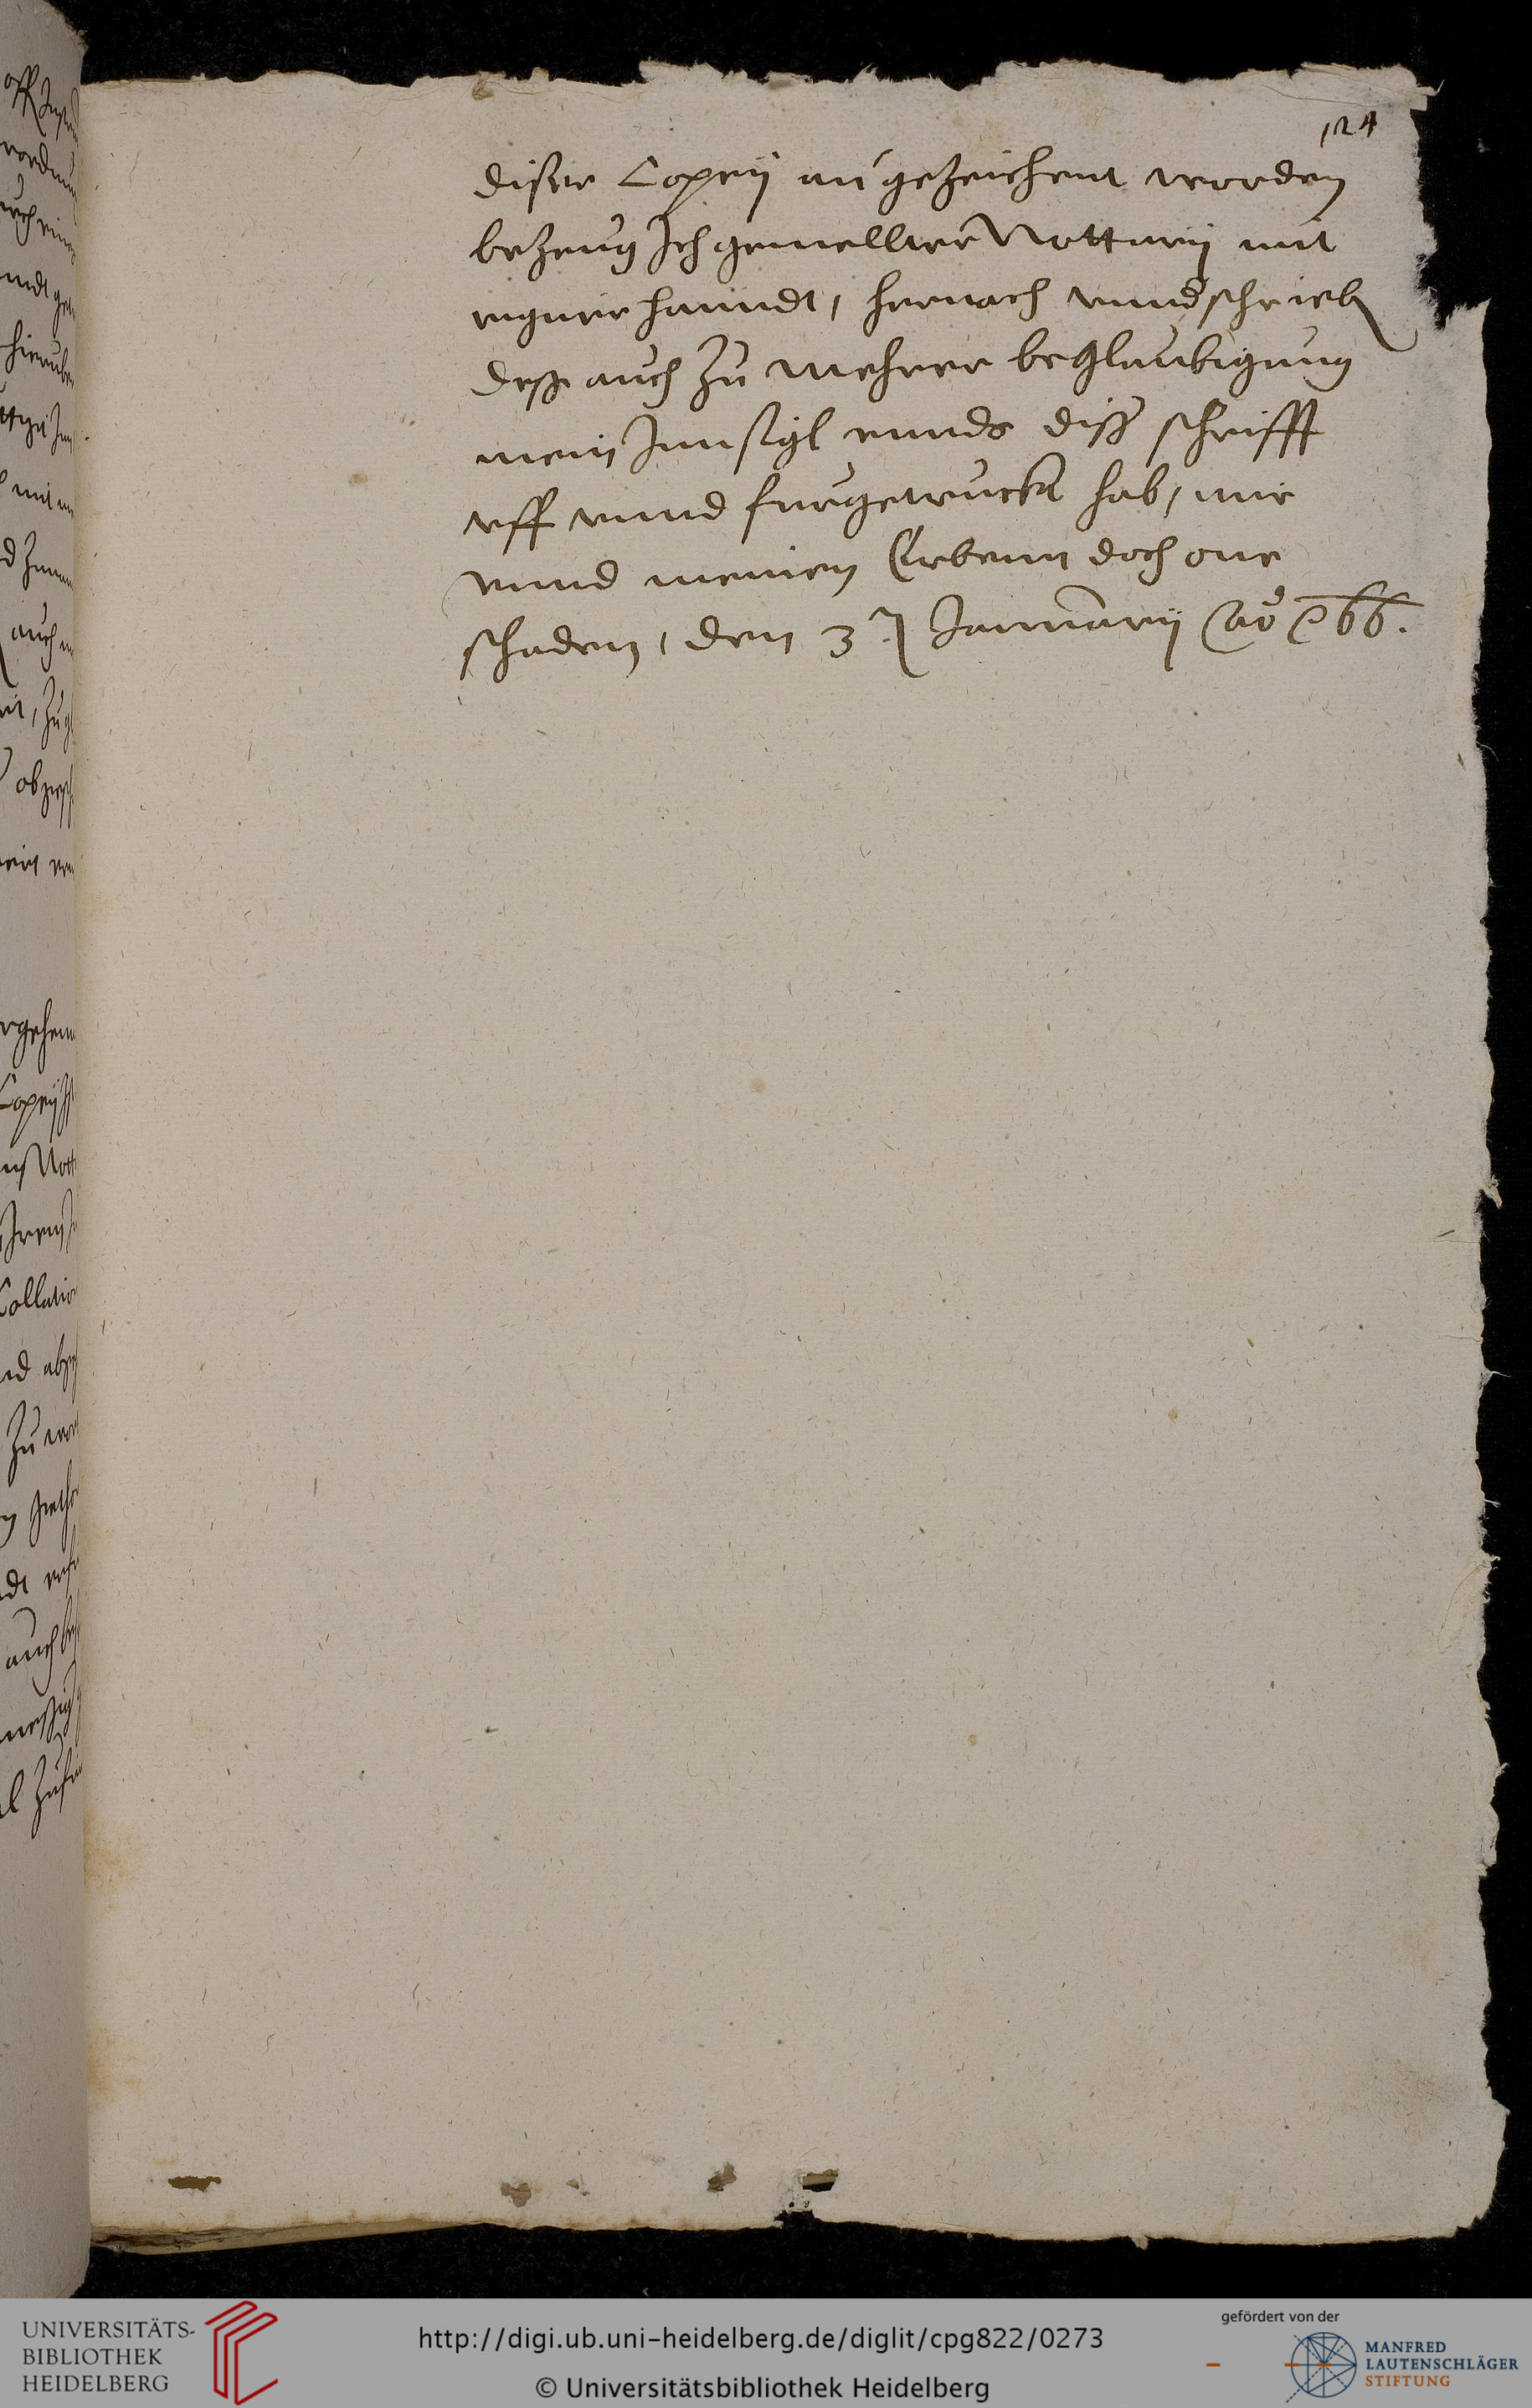 124
diser Copeij angezeichent worden
bezeug Ich gemellter Nottarij mit
eigner hanndt, hernach unnd schrieb
dess auch zu mehrer beglaubigung
mein Innsigl ennds diss schrifft
uff unnd furgetruckt hab, mir
unnd meinen Erbenn doch one
schaden, den 3 Januarij Ao 66.
UNIVERSITÄTS-
BIBLIOTHEK
HEIDELBERG
http://digi.ub.uni-heidelberg.de/diglit/cpg822/0273
© Universitätsbibliothek Heidelberg
gefördert von der
MANFRED
LAUTENSCHLÄGER
STIFTUNG